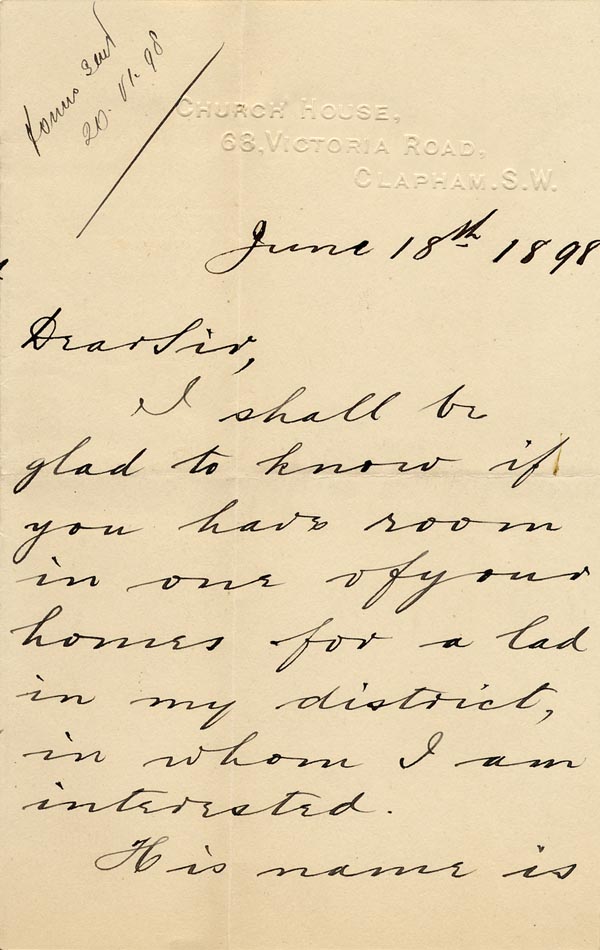 Forms sent
20. VI. 98
CHURCH HOUSE,
68, VICTORIA ROAD,
CLAPHAM. S.W.
June 18th 1898
Dear Sir,
I shall be
glad to know if
you have room
in one of your
homes for a lad
in my district,
in whom I am
interested.
His name is